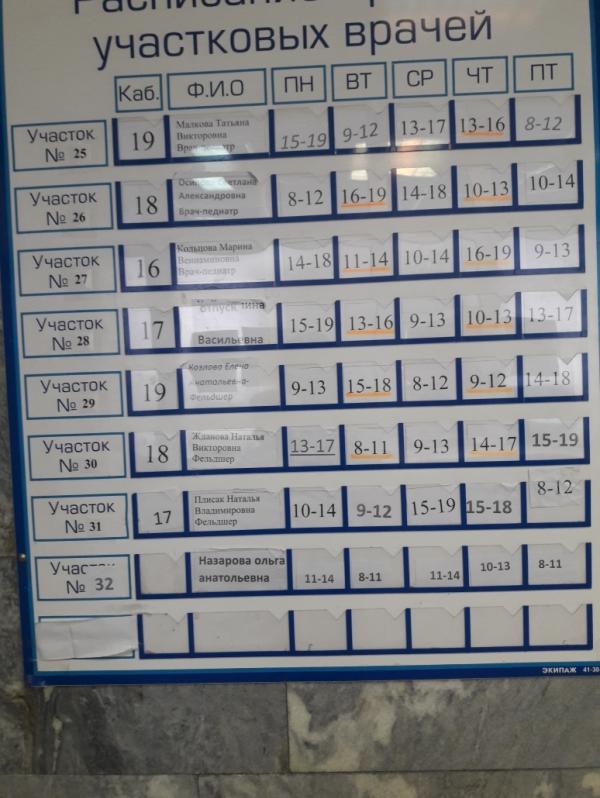 Расписание
участковых врачей
Каб. Ф.И.О ПН ВТ СР ЧТ ПТ
Участок № 25 19 Малкова Татьяна Викторовна Врач-педиатр 15-19 9-12 13-17 13-16 8-12
Участок № 26 18 Светлана Александровна Врач-педиатр 8-12 16-19 14-18 10-13 10-14
Участок № 27 16 Кольцова Марина Вениаминовна Врач-педиатр 14-18 11-14 10-14 16-19 9-13
Участок № 28 17 отпуск Васильевна 15-19 13-16 9-13 10-13 13-17
Участок № 29 19 Козлова Елена Анатольевна- Фельдшер 9-13 15-18 8-12 9-12 14-18
Участок № 30 18 Жданова Наталья Викторовна Фельдшер 13-17 8-11 9-13 14-17 15-19
Участок № 31 17 Плисак Наталья Владимировна Фельдшер 10-14 9-12 15-19 15-18 8-12
№ 32 Назарова ольга анатольевна 11-14 8-11 11-14 10-13 8-11
ЭКИПАЖ